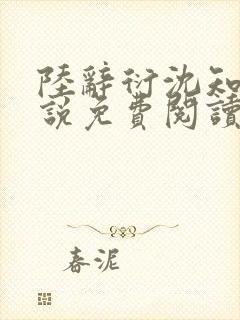 陸辭衍沈知
說免費閱讀
春泥